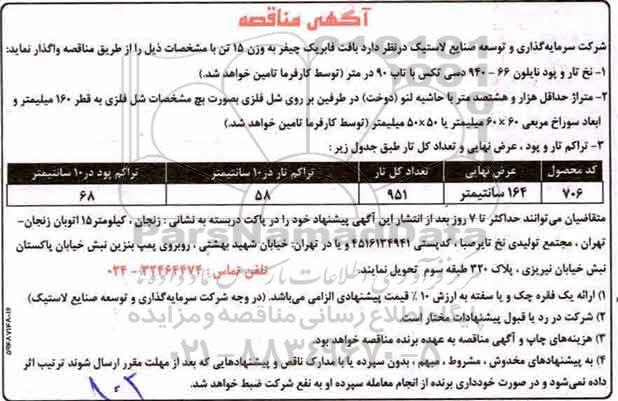 آگهی مناقصه
شرکت سرمایه‌گذاری و توسعه صنایع لاستیک درنظر دارد بافت فابریک چیفر به وزن ۱۵ تن با مشخصات ذیل را از طریق مناقصه واگذار نماید:
۱- نخ تار و پود نایلون ۶۶ - ۹۴۰ دسی تکس با تاپ ۹۰ در متر (توسط کارفرما تامین خواهد شد.)
۲- متراژ حداقل هزار و هشتصد متر با حاشیه لنو (دوخت) در طرفین بر روی شل فلزی بصورت بچ مشخصات شل فلزی به قطر ۱۶۰ میلیمتر و
ابعاد سوراخ مربعی ۶۰×۶۰ میلیمتر یا ۵۰×۵۰ میلیمتر (توسط کارفرما تامین خواهد شد.)
۳- تراکم تار و پود ، عرض نهایی و تعداد کل تار طبق جدول زیر :
کد محصول عرض نهایی تعداد کل تار تراکم تار در۱۰ سانتیمتر تراکم پود در۱۰ سانتیمتر
۷۰۶ ۱۶۴ سانتیمتر ۹۵۱ ۵۸ ۶۸
متقاضیان می‌توانند حداکثر تا ۷ روز بعد از انتشار این آگهی پیشنهاد خود را در پاکت دربسته به نشانی : زنجان ، کیلومتر۱۵ اتوبان زنجان-
تهران ، مجتمع تولیدی نخ تایرصبا ، کدپستی ۴۵۱۶۱۳۴۹۴۱ و یا در تهران- خیابان شهید بهشتی ، روبروی پمپ بنزین نبش خیابان پاکستان
نبش خیابان نیریزی ، پلاک ۳۲۰ طبقه سوم تحویل نمایند. تلفن تماس : ۳۲۴۶۴۴۷۴ - ۰۲۴
۱) ارائه یک فقره چک و یا سفته به ارزش ۱۰ ٪ قیمت پیشنهادی الزامی می‌باشد. (در وجه شرکت سرمایه‌گذاری و توسعه صنایع لاستیک)
۲) شرکت در رد یا قبول پیشنهادات مختار است.
۳) هزینه‌های چاپ و آگهی مناقصه به عهده برنده مناقصه خواهد بود.
۴) به پیشنهادهای مخدوش ، مشروط ، مبهم ، بدون سپرده یا با مدارک ناقص و پیشنهادهایی که بعد از مهلت مقرر ارسال شوند ترتیب اثر
داده نمی‌شود و در صورت خودداری برنده از انجام معامله سپرده او به نفع شرکت ضبط خواهد شد.
ParsNamadData
۰۲۱-۸۸۳۴۹۶۷۰-۵
۱۰۳